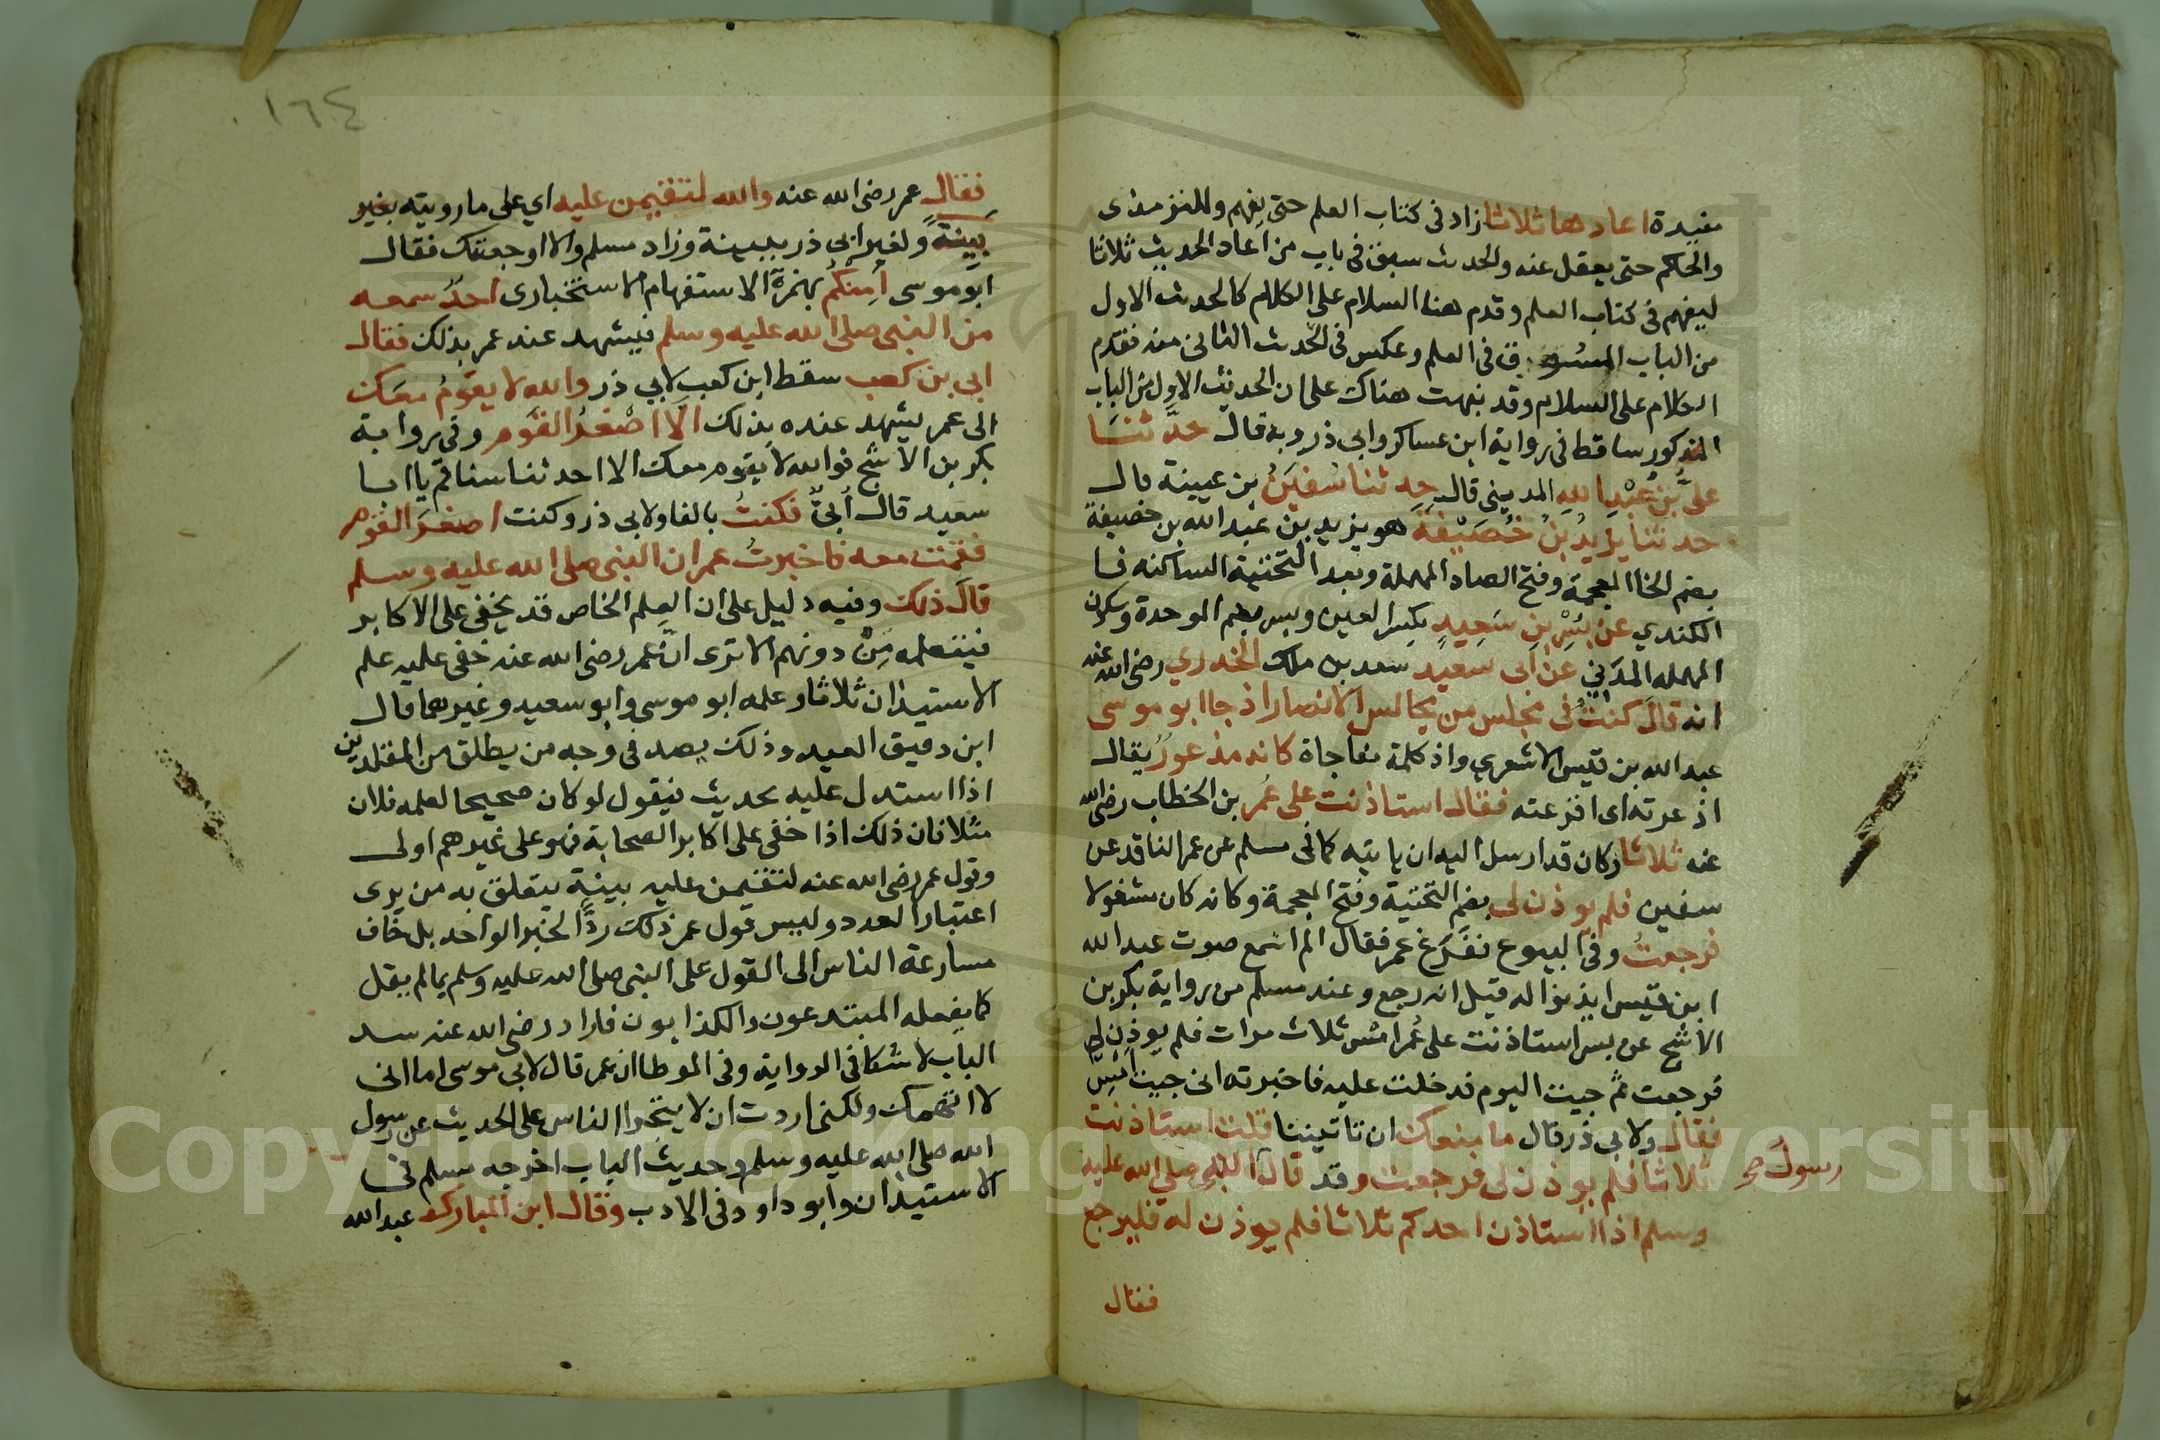 مفيدة اعادها ثلاثا زاد في كتاب العلم حتى يفهم وللترمذى
والحاكم حتى يعقل عنه والحديث سبق في باب من اعاد الحديث ثلاثا
ليفهم في كتاب العلم وقدم هنا السلام على الكلام كالحديث الاول
من الباب المسوق في العلم وعكس في الحديث الثاني منه فقدم
الكلام على السلام وقد نبهت هناك على ان الحديث الاول من الباب
المذكور ساقط في رواية ابن عساكر وابي ذر وبه قال حدَّثنَا
عليُّ بنُ عبْدِ اللهِ المديني قال حدثنا سُفيَنُ بن عيينة قال
حدثنا يزِيدُ بنُ خُصَيْفةَ هو يزيد بن عبد الله بن خصيفة
بضم الخا المعجمة وفتح الصاد المهملة وبعد التحتية الساكنة فا
الكندي عن بُسْرِ بنِ سَعِيدٍ بكسر العين وبسر بضم الموحدة وسكون
المهمله المدَني عن أبى سعيد سعد بن ملك الخدري رضى الله عنه
انه قالَ كنتُ فى مجلس من مجالس الانصار اذ جا ابو موسى
عبد الله بن قيس الاشعري واذ كلمة مفاجاة كانه مذعورٌ يقال
اذعرته اى افزعته فقال استاذنت على عُمر بن الخطاب رضى الله
عنه ثلاثا وكان قد ارسل اليه ان ياتيه كما في مسلم عن عمر الناقد عن
سفين فلم يوذن لى بضم التحتية وفتح المعجمة وكانه كان مشغولا
فرجعتُ وفى البيوع ففَرَغ عمر فقال الم اسمع صوت عبد الله
ابن قيس ايذنوا له قيل انه رجع وعند مسلم من رواية بكر بن
الاشج عن بسر استاذنت على عُمر امس ثلاث مرات فلم يوذن لي
فرجعت ثم جيت اليوم فدخلت عليه فاخبرته انى جيت امْسِ
فقال ولابي ذر قال ما منعك ان تاتيننا قلت استاذنت
ثلاثا فلم يوذن لى فرجعت وقد قال النبي صلى الله عليه
رسول صح
وسلم اذا استاذن احدكم ثلاثا فلم يوذن له فليرجع
فقال
١٦٤
فقال عمر رضى الله عنه والله لتقيمن عليه اي على ما رويته بغير
بَيِنَةً ولغير ابي ذر ببينة وزاد مسلم والا اوجعتك فقال
ابو موسى أمِنكُم بهمزة الاستفهام الاستخبارى احدٌ سمعه
من النبي صلى الله عليه وسلم فيشهد عند عمر بذلك فقال
ابي بن كعب سقط ابن كعب لابي ذر والله لا يقومُ معَك
الى عمر يشهد عنده بذلك الا اصْغرُ القوَم وفى رواية
بكر بن الاشج فوالله لا يقوم معك الا احدثنا سنا قم يا ابا
سعيد قال اُبيٌّ فكنتُ بالفا ولابي ذر وكنت اصغرَ القوْم
فقمت معه فاخبرتُ عمر ان النبي صلى الله عليه وسلم
قالَ ذلك وفيه دليل على ان العِلم الخاص قد يخفى على الاكابر
فيتعلمه مِنْ دونهم الا ترى انَّ عمر رضى الله عنه خفى عليه علم
الاستيذان ثلاثا وعلمه ابو موسى وابو سعيد وغيرهما قال
ابن دقيق العيد وذلك يصد في وجه من يطلق من المقلدين
اذا استدل عليه بحديث فيقول لو كان صحيحا لعلمه فلان
مثلا فان ذلك اذا خفى على اكابر الصحابة فهو على غيرهم اولى
وقول عمر رضى الله عنه لتقيمن عليه بينة يتعلق به من يرى
اعتبار العدد وليس قول عمر ذلك ردًّا لخبر الواحد بل خاف
مسارعة الناس الى القول على النبي صلى الله عليه وسلم بما لم يقل
كما يفعله المبتدعون والكذابون فاراد رضى الله عنه سد
الباب لا شكا في الرواية وفى الموطا ان عمر قال لابي موسى اما انى
لا اتهمك ولكنى اردت ان لا يتجرا الناس على الحديث عن رسول
الله صلى الله عليه وسلم وحديث الباب اخرجه مسلم فى
الاستيذان وابو داود فى الادب وقال ابن المبارك عبد الله
Copyright © King Saud University